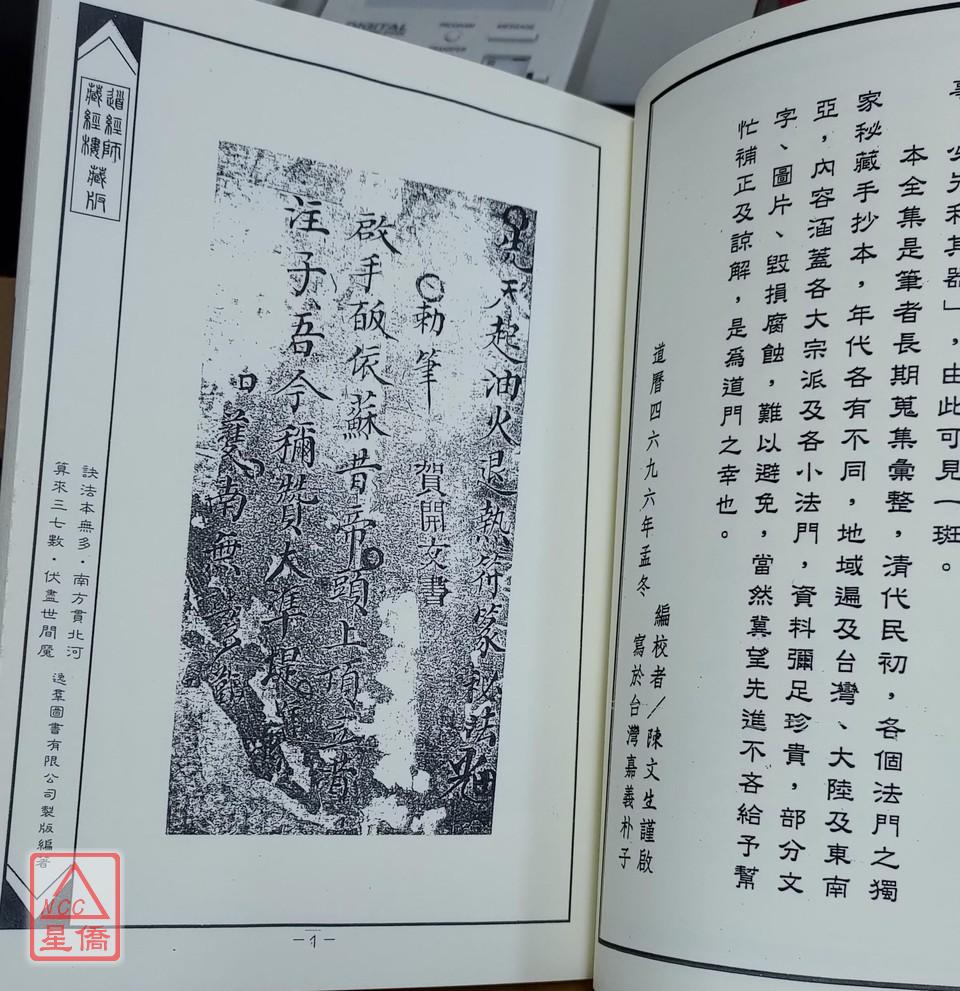 必先利其器」，由此可見一斑。
本全集是筆者長期蒐集彙整，清代民初，各個法門之獨
家秘藏手抄本，年代各有不同，地域遍及台灣、大陸及東南
亞，內容涵蓋各大宗派及各小法門，資料彌足珍貴，部分文
字、圖片、毀損腐蝕，難以避免，當然冀望先進不吝給予幫
忙補正及諒解，是為道門之幸也。
道曆四六九六年孟冬
編校者／陳文生謹啟
寫於台灣嘉義朴子
天起油火退熱符篆秘法
勅筆 賀開文書
啟手皈依蘇昔帝頭上頂
注子吾今稱讚大準提
南無
道經師
藏經樓藏版
訣法本無多・南方貫北河
算來三七數・伏盡世間魔
逸羣圖書有限公司製版編著
-1-
DIGITAL
PROGRAM
MESSAGE
TRANSFER
NCC
星僑